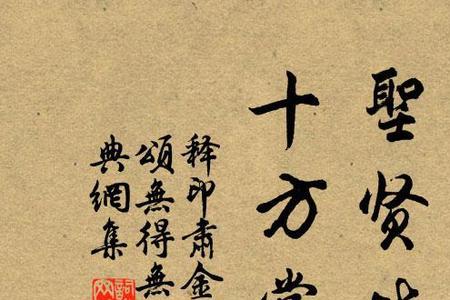 聖贤
十方
释印肅金
頌無得無
典網集